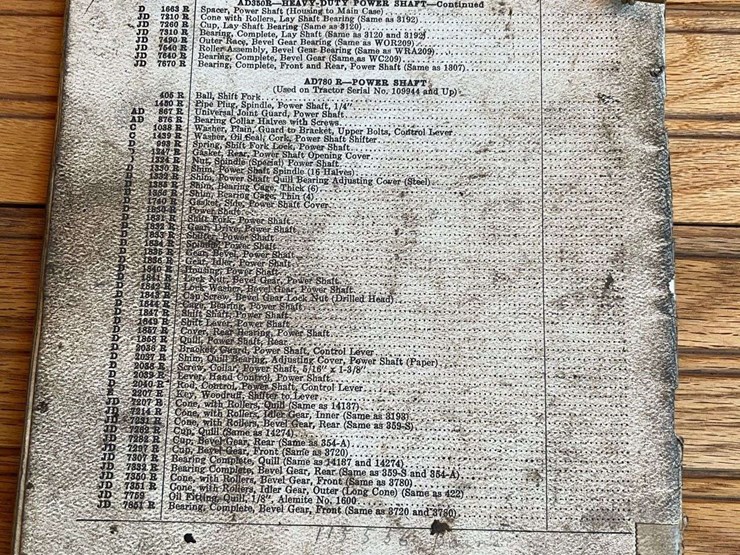 AD350R—HEAVY-DUTY POWER SHAFT—Continued
D 1663 R Spacer, Power Shaft (Housing to Main Case)
JD 7210 R Cone with Rollers, Lay Shaft Bearing (Same as 3192)
JD 7260 R Cup, Lay Shaft Bearing (Same as 3120)
JD 7310 R Bearing, Complete, Lay Shaft (Same as 3120 and 3192)
JD 7490 R Outer Race, Bevel Gear Bearing (Same as WOR209)
JD 7540 R Roller Assembly, Bevel Gear Bearing (Same as WRA209)
JD 7640 R Bearing, Complete, Bevel Gear (Same as WC209)
JD 7670 R Bearing, Complete, Front and Rear, Power Shaft (Same as 1307)
AD780 R—POWER SHAFT
(Used on Tractor Serial No. 109944 and Up)
405 R Ball, Shift Fork
1480 R Pipe Plug, Spindle, Power Shaft, 1/4"
AD 867 R Universal Joint Guard, Power Shaft
AD 876 R Bearing Collar Halves with Screws
C 1038 R Washer, Plain, Guard to Bracket, Upper Bolts, Control Lever
C 1439 R Washer, Oil Seal, Cork, Power Shaft Shifter
D 693 R Spring, Shift Fork Lock, Power Shaft
D 1247 R Gasket, Rear, Power Shaft Opening Cover
1324 R Nut, Spindle (Special) Power Shaft
1330 R Shim, Power Shaft Spindle (16 Halves)
1332 R Shim, Power Shaft Quill Bearing Adjusting Cover (Steel)
Shim, Bearing Cage, Thick (6)
Shim, Bearing Cage, Thin (4)
D 1740 R Gasket, Side, Power Shaft Cover
D Power Shaft
D 1831 R Shift Fork, Power Shaft
D 1832 R Gear, Drive, Power Shaft
D 1833 R Shifter, Power Shaft
D 1834 R Spindle, Power Shaft
D 1835 R Gear, Bevel, Power Shaft
D 1836 R Gear, Idler, Power Shaft
D 1840 R Housing, Power Shaft
D 1841 R Lock Nut, Bevel Gear, Power Shaft
D 1842 R Lock Washer, Bevel Gear, Power Shaft
D 1843 R Cap Screw, Bevel Gear Lock Nut (Drilled Head)
D 1844 R Cage, Bearing, Power Shaft
D 1847 R Shift Shaft, Power Shaft
D 1849 R Shift Lever, Power Shaft
D 1857 R Cover, Rear Bearing, Power Shaft
D 1858 R Quill, Power Shaft, Rear
D 2036 R Bracket, Guard, Power Shaft, Control Lever
D 2037 R Shim, Quill Bearing, Adjusting Cover, Power Shaft (Paper)
D 2038 R Screw, Collar, Power Shaft, 5/16" x 1-3/8"
D 2039 R Lever, Hand Control, Power Shaft
D 2040 R Rod, Control, Power Shaft, Control Lever
2207 R Key, Woodruff, Shifter to Lever
JD 7207 R Cone, with Rollers, Quill (Same as 14137)
JD 7214 R Cone, with Rollers, Idler Gear, Inner (Same as 3193)
JD 7231 R Cone, with Rollers, Bevel Gear, Rear (Same as 359-S)
JD 7262 R Cup, Quill (Same as 14274)
JD 7282 R Cup, Bevel Gear, Rear (Same as 354-A)
JD 7297 R Cup, Bevel Gear, Front (Same as 3720)
JD 7307 R Bearing Complete, Quill (Same as 14137 and 14274)
JD 7332 R Bearing Complete, Bevel Gear, Rear (Same as 359-S and 354-A)
JD 7350 R Cone, with Rollers, Bevel Gear, Front (Same as 3780)
JD 7351 R Cone, with Rollers, Idler Gear, Outer (Long Cone) (Same as 422)
JD 7759 Oil Fitting, Quill, 1/8", Alemite No. 1600
JD 7851 R Bearing, Complete, Bevel Gear, Front (Same as 3720 and 3780)